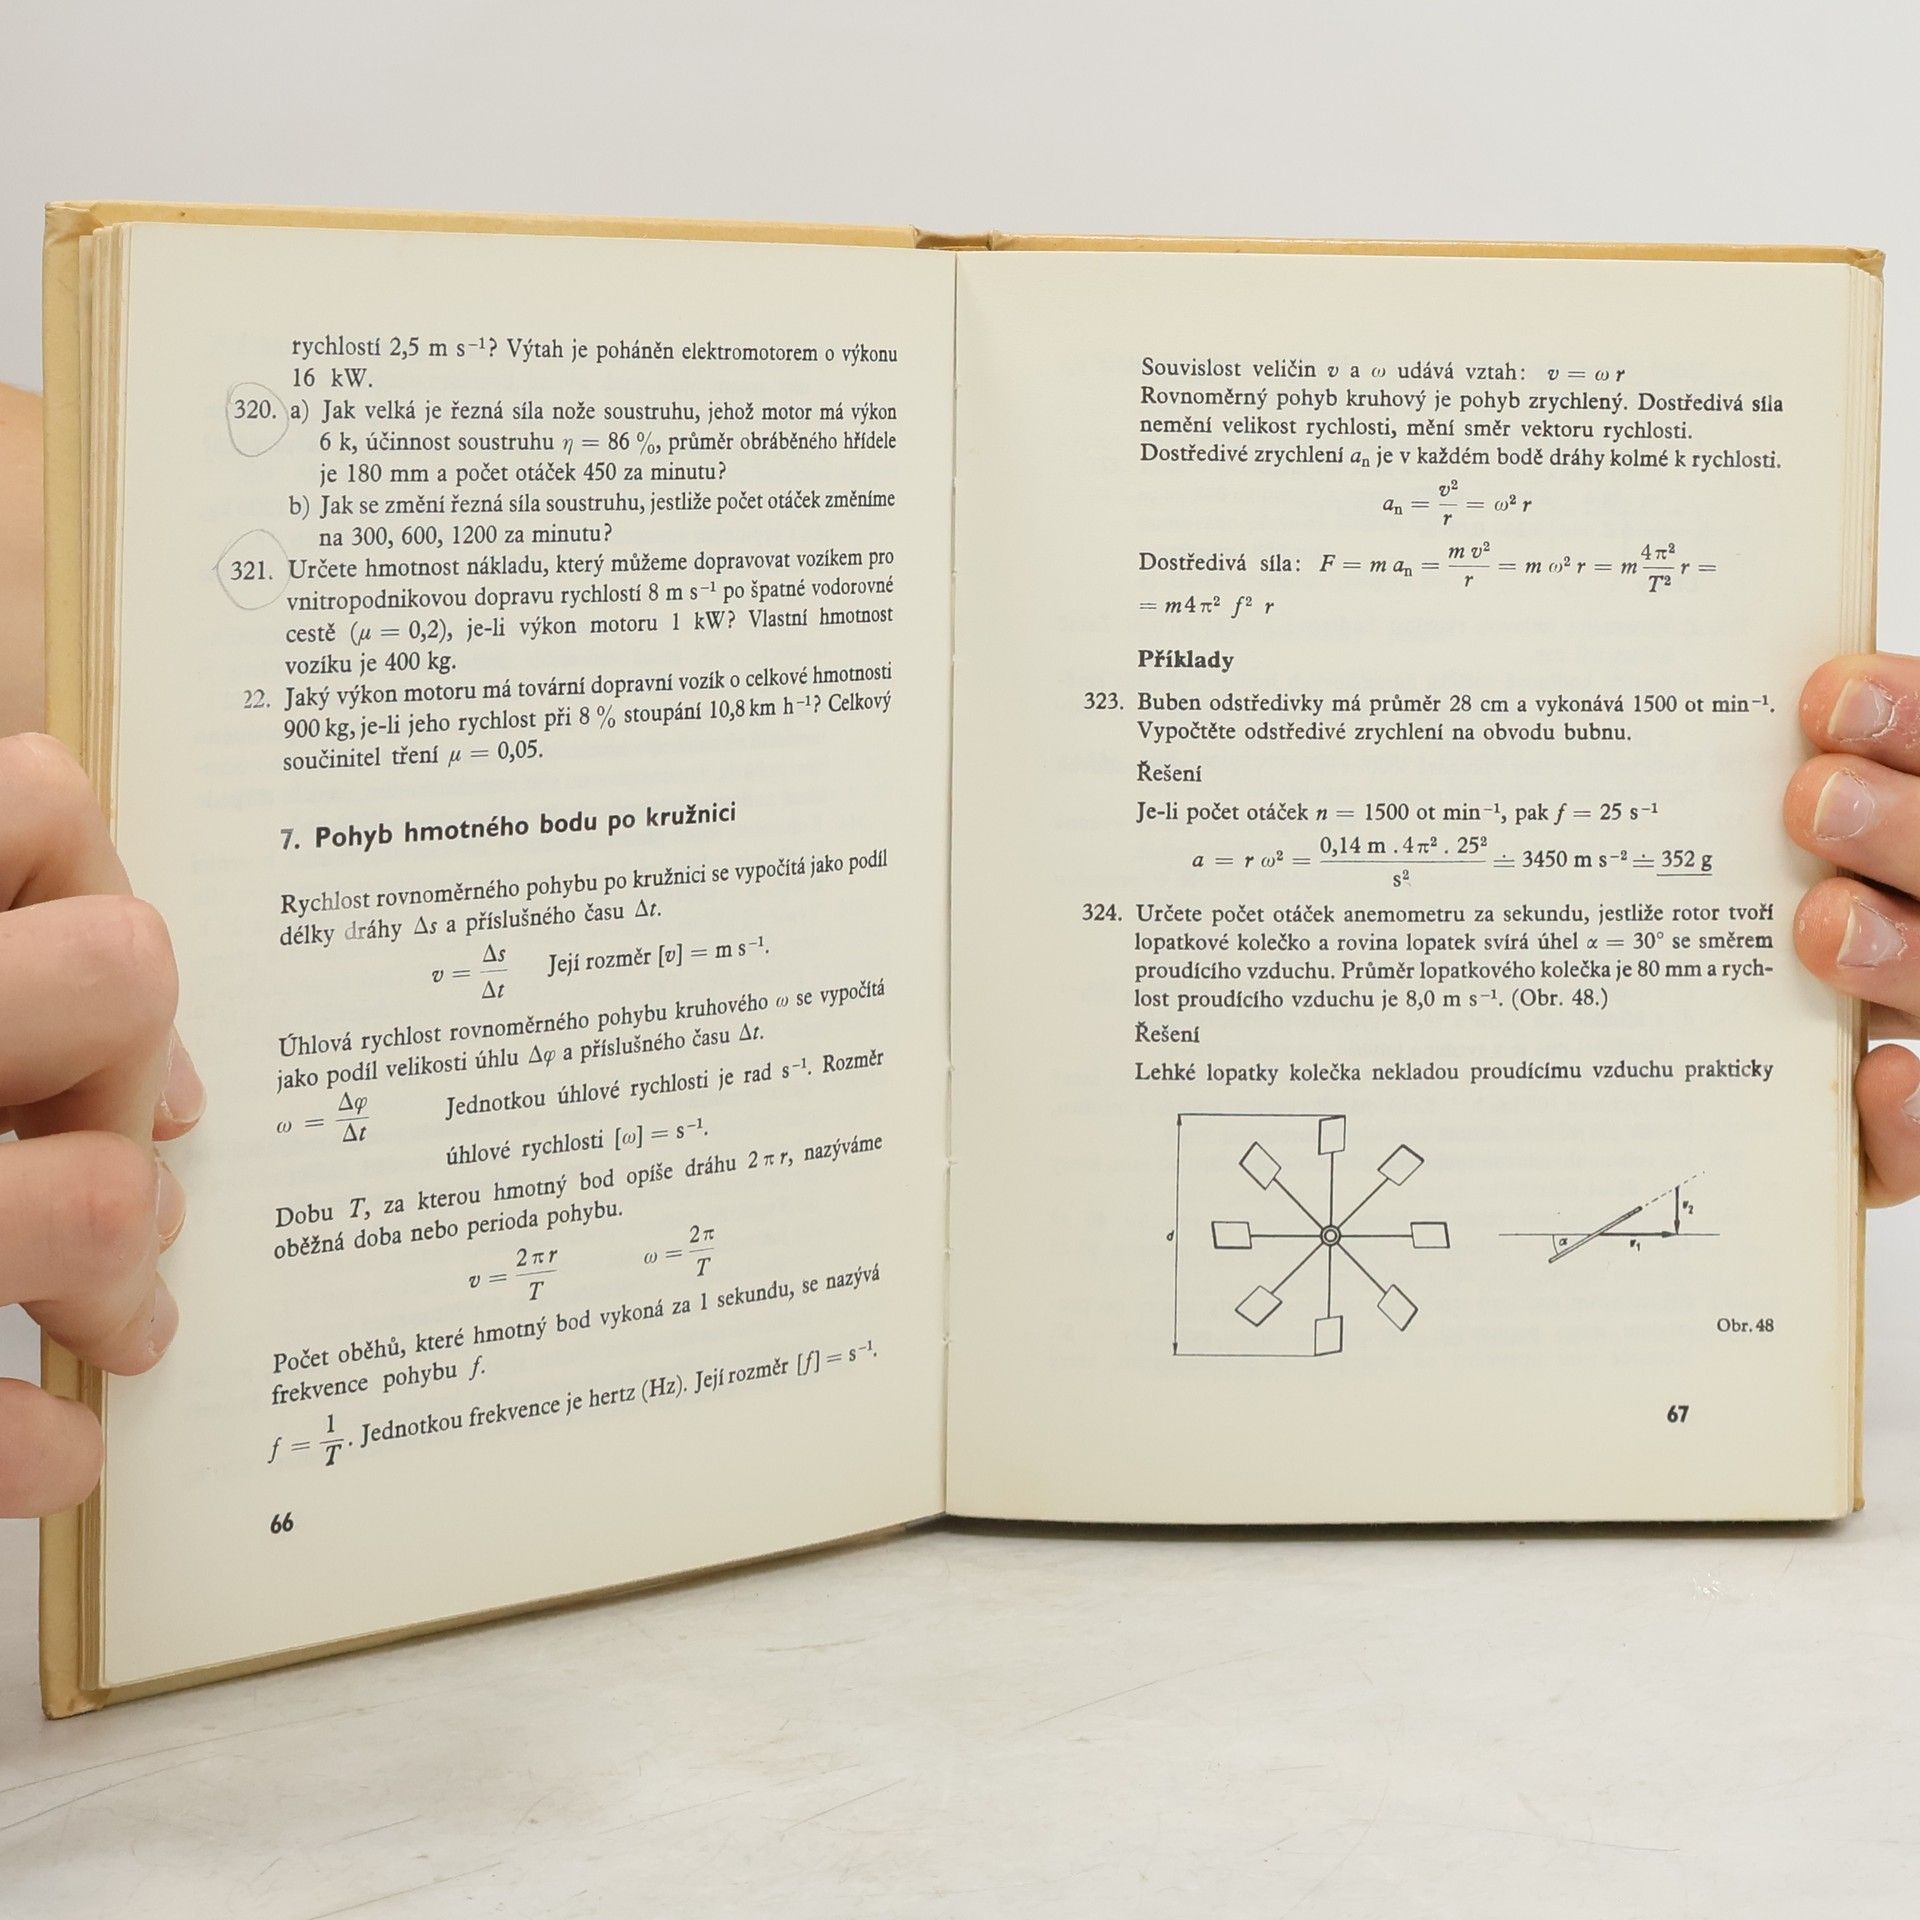 rychlostí 2,5 m s⁻¹? Výtah je poháněn elektromotorem o výkonu
16 kW.
320. a) Jak velká je řezná síla nože soustruhu, jehož motor má výkon
6 k, účinnost soustruhu η = 86 %, průměr obráběného hřídele
je 180 mm a počet otáček 450 za minutu?
b) Jak se změní řezná síla soustruhu, jestliže počet otáček změníme
na 300, 600, 1200 za minutu?
321. Určete hmotnost nákladu, který můžeme dopravovat vozíkem pro
vnitropodnikovou dopravu rychlostí 8 m s⁻¹ po špatné vodorovné
cestě (μ = 0,2), je-li výkon motoru 1 kW? Vlastní hmotnost
vozíku je 400 kg.
22. Jaký výkon motoru má tovární dopravní vozík o celkové hmotnosti
900 kg, je-li jeho rychlost při 8 % stoupání 10,8 km h⁻¹? Celkový
součinitel tření μ = 0,05.
7. Pohyb hmotného bodu po kružnici
Rychlost rovnoměrného pohybu po kružnici se vypočítá jako podíl
délky dráhy Δs a příslušného času Δt.
v = Δs/Δt Její rozměr [v] = m s⁻¹.
Úhlová rychlost rovnoměrného pohybu kruhového ω se vypočítá
jako podíl velikosti úhlu Δφ a příslušného času Δt.
ω = Δφ/Δt Jednotkou úhlové rychlosti je rad s⁻¹. Rozměr
úhlové rychlosti [ω] = s⁻¹.
Dobu T, za kterou hmotný bod opíše dráhu 2 π r, nazýváme
oběžná doba nebo perioda pohybu.
v = 2 π r/T ω = 2π/T
Počet oběhů, které hmotný bod vykoná za 1 sekundu, se nazývá
frekvence pohybu f.
f = 1/T. Jednotkou frekvence je hertz (Hz). Její rozměr [f] = s⁻¹.
66
Souvislost veličin v a ω udává vztah: v = ω r
Rovnoměrný pohyb kruhový je pohyb zrychlený. Dostředivá síla
nemění velikost rychlosti, mění směr vektoru rychlosti.
Dostředivé zrychlení aₙ je v každém bodě dráhy kolmé k rychlosti.
aₙ = v²/r = ω² r
Dostředivá síla: F = m aₙ = m v²/r = m ω² r = m 4 π²/T² r =
= m4 π² f² r
Příklady
323. Buben odstředivky má průměr 28 cm a vykonává 1500 ot min⁻¹.
Vypočtěte odstředivé zrychlení na obvodu bubnu.
Řešení
Je-li počet otáček n = 1500 ot min⁻¹, pak f = 25 s⁻¹
a = r ω² = 0,14 m . 4 π² . 25²/s² ≐ 3450 m s⁻² ≐ 352 g
324. Určete počet otáček anemometru za sekundu, jestliže rotor tvoří
lopatkové kolečko a rovina lopatek svírá úhel α = 30° se směrem
proudícího vzduchu. Průměr lopatkového kolečka je 80 mm a rych-
lost proudícího vzduchu je 8,0 m s⁻¹. (Obr. 48.)
Řešení
Lehké lopatky kolečka nekladou proudícímu vzduchu prakticky
d
α v₁ v₂
Obr. 48
67